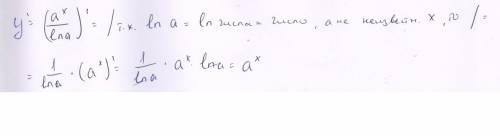 y' = (a^x / ln a)' = / т.к. ln a = ln числа = число, а не неизвестн. x, то / =
= 1/ln a · (a^x)' = 1/ln a · a^x · ln a = a^x